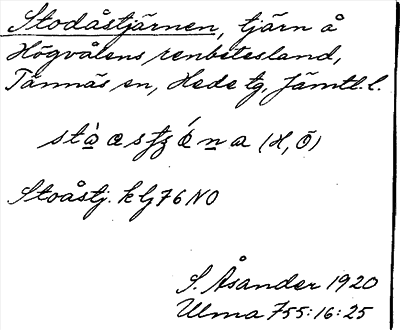 Stodåstjärnen, tjärn å
Högvålens renbetesland,
Tännäs sn, Hede tg, Jämtl. l.
(H, Ö)
Stoåstj. k bj 76 NO
S. Åsander 1920
Ulma 755:16:25